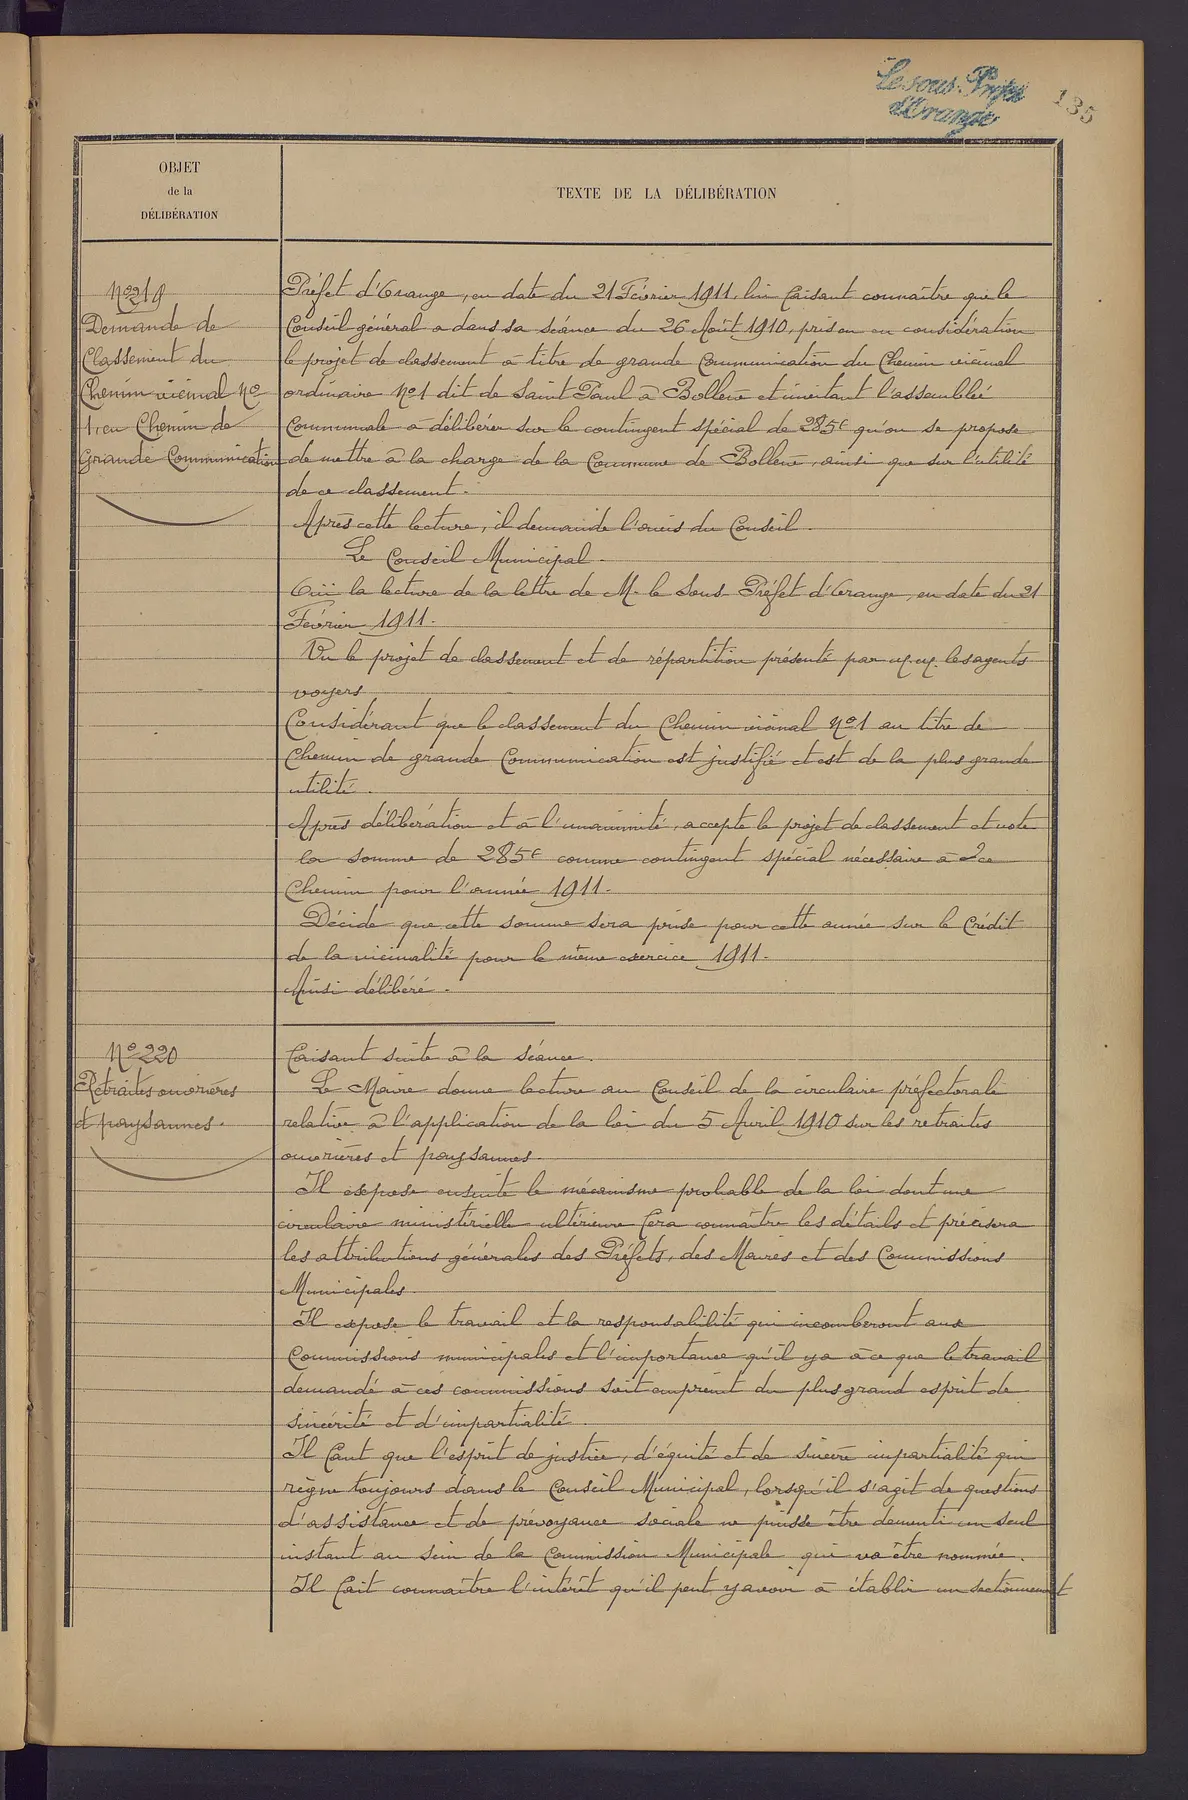 Le sous-Préfet
d'Orange
135
OBJET
de la
DÉLIBÉRATION
TEXTE DE LA DÉLIBÉRATION
No 219
Demande de
Classement du
Chemin vicinal No
1, en Chemin de
Grande Communication
Préfet d'Orange, en date du 21 Février 1911, lui faisant connaître que le
Conseil général a dans sa séance du 26 Août 1910, pris en en considération
le projet de classement a titre de grande Communication du Chemin vicinal
ordinaire No 1 dit de Saint Paul à Bollène et invitant l'assemblée
Communale à délibérer sur le contingent spécial de 285f qu'on se propose
de mettre à la charge de la Commune de Bollène, ainsi que sur l'utilité
de ce classement.
Après cette lecture, il demande l'avis du Conseil.
Le Conseil Municipal.
Ouï la lecture de la lettre de M. le Sous-Préfet d'Orange, en date du 21
Février 1911.
Vu le projet de classement et de répartition présenté par M.M. les agents
voyers
Considérant que le classement du Chemin vicinal No 1 au titre de
Chemin de grande Communication est justifié et est de la plus grande
utilité.
Après délibération et à l'unanimité, accepte le projet de classement et vote
la somme de 285f comme contingent spécial nécessaire à ce
Chemin pour l'année 1911.
Décide que cette somme sera prise pour cette année sur le Crédit
de la vicinalité pour le même exercice 1911.
Ainsi délibéré.
No 220
Retraites ouvrières
et paysannes.
Faisant suite à la séance.
Le Maire donne lecture au Conseil de la circulaire préfectorale
relative à l'application de la loi du 5 Avril 1910 sur les retraites
ouvrières et paysannes.
Il expose ensuite le mécanisme probable de la loi dont une
circulaire ministérielle ultérieure fera connaître les détails et précisera
les attributions générales des Préfets, des Maires et des Commissions
Municipales.
Il expose le travail et la responsabilité qui incomberont aux
Commissions municipales et l'importance qu'il y a à ce que le travail
demandé à ces commissions soit empreint du plus grand esprit de
sincérité et d'impartialité.
Il faut que l'esprit de justice, d'équité et de sincère impartialité qui
règne toujours dans le Conseil Municipal, lorsqu'il s'agit de questions
d'assistance et de prévoyance sociale ne puisse être démenti un seul
instant au sein de la Commission Municipale qui va être nommée.
Il fait connaître l'intérêt qu'il peut y avoir à établir un sectionnement